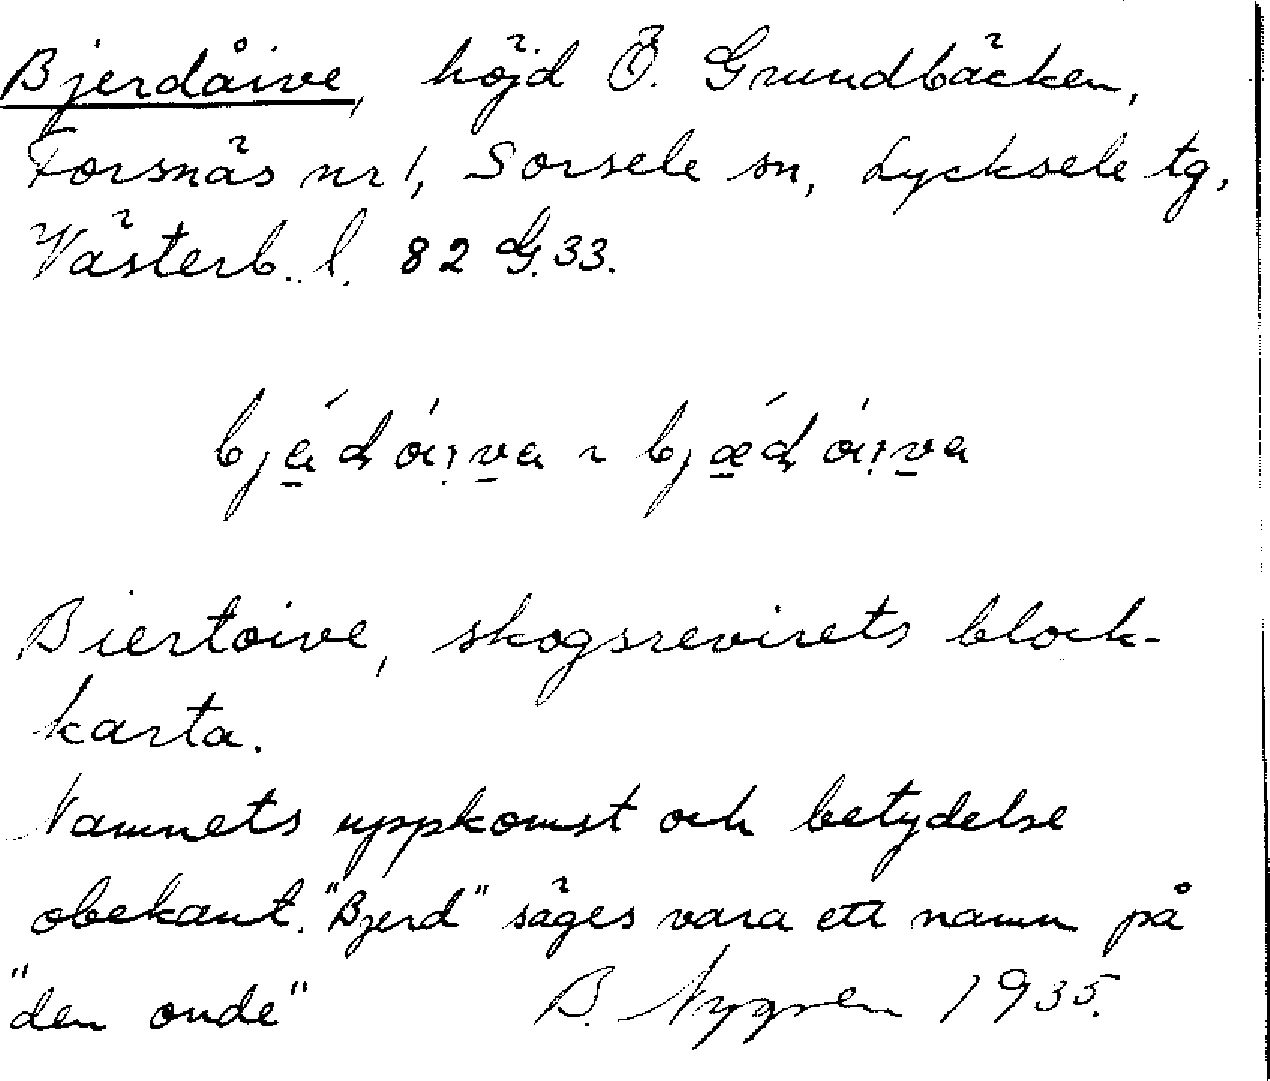 Bjerdåive, höjd Ö. Grundbäcken,
Forsnäs nr 1, Sorsele sn, Lycksele tg,
Västerb. l. 82 G. 33.
Biertoive, skogsrevirets block-
karta.
Namnets uppkomst och betydelse
obekant. "Bjerd" säges vara ett namn på
"den onde" B. Nygren 1935.